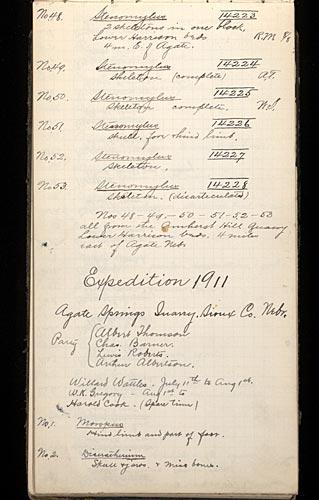 No 48. Stenomylus 14223
2 skeletons in one block,
Lower Harrison beds R.M.
4 m. E. of Agate.
No 49. Stenomylus 14224
Skeleton (complete) A.T.
No 50. Stenomylus 14225
Skeleton complete.
No 51. Stenomylus 14226
skull, fore & hind limb.
No 52. Stenomylus 14227
skeleton.
No 53. Stenomylus 14228
skeleton. (disarticulated)
Nos 48 - 49 - 50 - 51 - 52 - 53
all from the Amherst Hill Quarry
Lower Harrison beds. 4 miles
east of Agate Neb.
Expedition 1911
Agate Springs Quarry, Sioux Co. Nebr.
Party Albert Thomson
Chas. Barner.
Lewis Roberts.
Arthur Albertson.
Willard Watles - July 11th to Aug 1st.
W.K. Gregory - Aug 1st to
Harold Cook. (Spare time)
No. 1. Moropus
Hind limb and part of foot.
No. 2. Diceratherium
Skull & jaws. & misc bones.